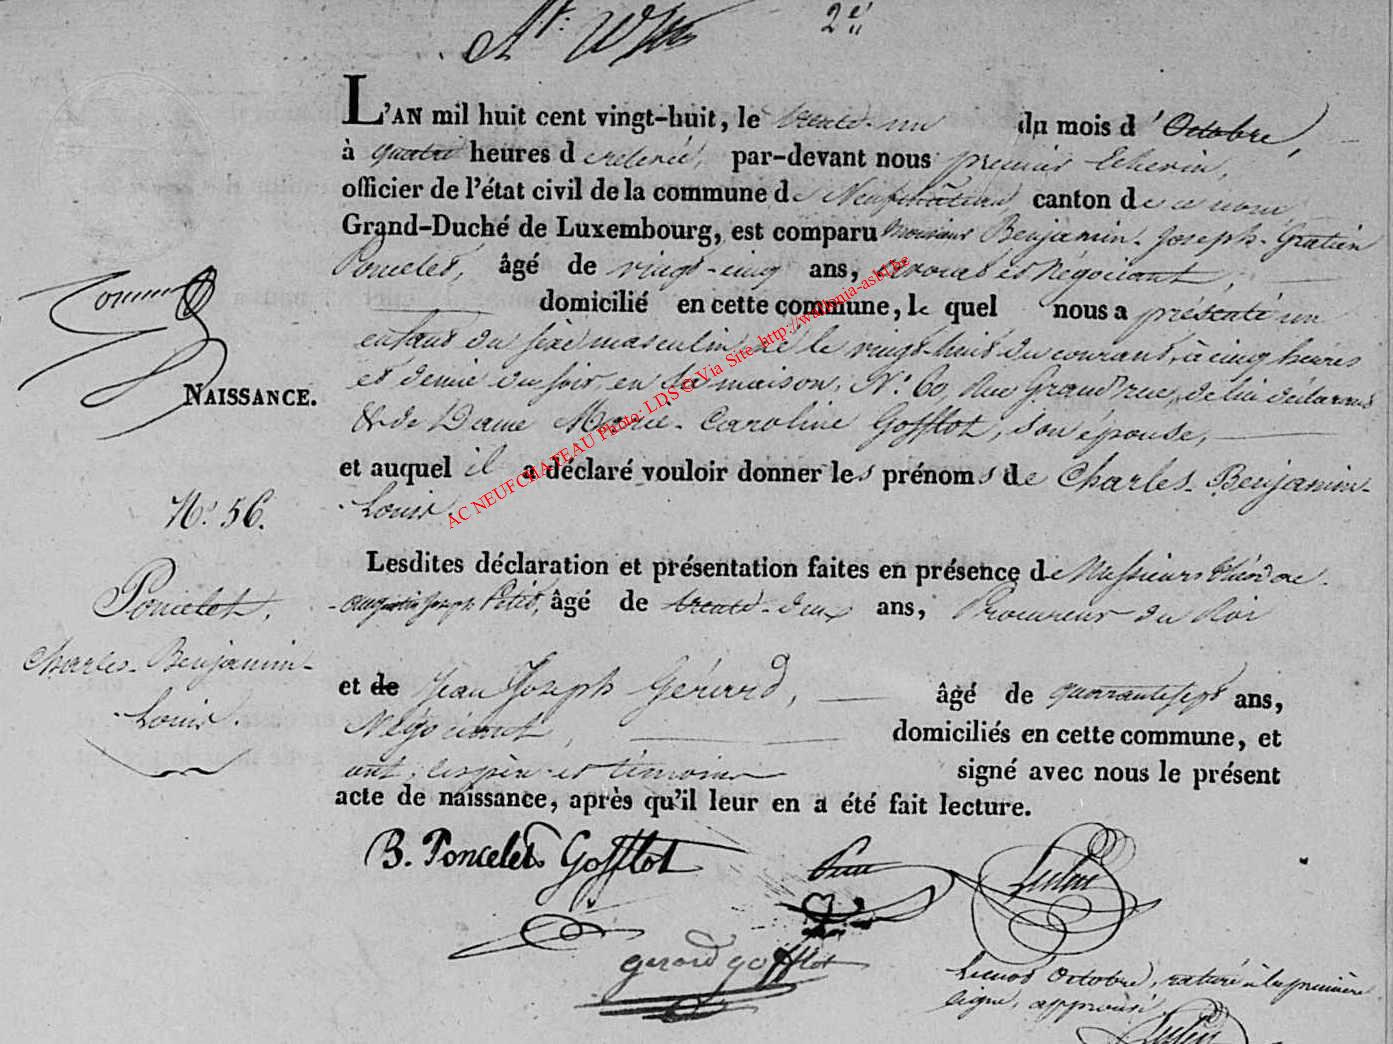 2e
L'AN mil huit cent vingt-huit, le trente-un du mois d'Octobre,
à quatre heures de relevée, par-devant nous premier Echevin,
officier de l'état civil de la commune de Neufchâteau canton de ce nom,
Grand-Duché de Luxembourg, est comparu Monsieur Benjamin-Joseph-Gratien
Poncelet, âgé de vingt-cinq ans, avocat et Négociant,
domicilié en cette commune, le quel nous a présenté un
enfant du sexe masculin, né le vingt-huit du courant, à cinq heures
et demie du soir, en sa maison, N° 60, rue Grand'rue, de lui déclarant
& de Dame Marie-Caroline Gofflot, son épouse,
NAISSANCE.
et auquel il a déclaré vouloir donner les prénoms de Charles-Benjamin-
Louis.
N° 56.
Poncelet,
Charles-Benjamin-
Louis.
Lesdites déclaration et présentation faites en présence de Messieurs Théodore-
Augustin Joseph Petit, âgé de trente-deux ans, Procureur du Roi
et de Jean Joseph Gérard, âgé de quarante sept ans,
Négociant, domiciliés en cette commune, et
ont, les père et témoins signé avec nous le présent
acte de naissance, après qu'il leur en a été fait lecture.
B. Poncelet Gofflot
gerard gofflot
Le mot Octobre, raturé à la première
ligne, approuvé
AC NEUFCHATEAU Photo: LDS © Via Site http://wallonia-asbl.be